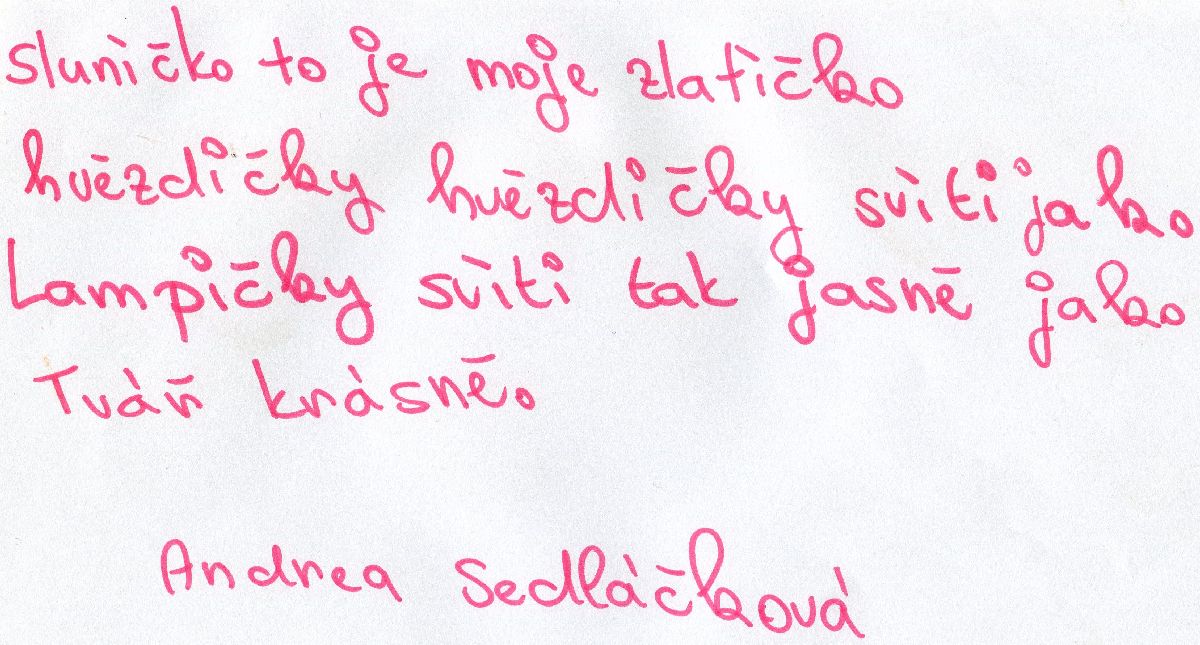 sluníčko to je moje zlatíčko
hvězdičky hvězdičky svítí jako
Lampičky svítí tak jasně jako
Tvář krásně.
Andrea Sedláčková